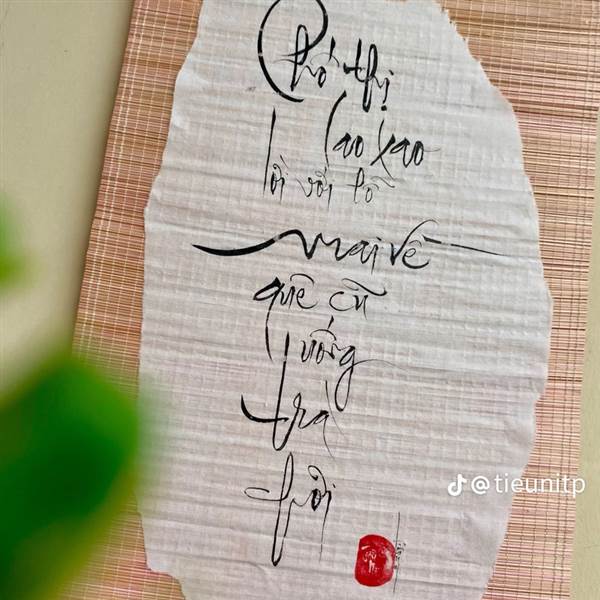 Phố thị
lao xao
lời với lỗ
mai về
quê cũ
uống
trà
tươi
@tieunitp